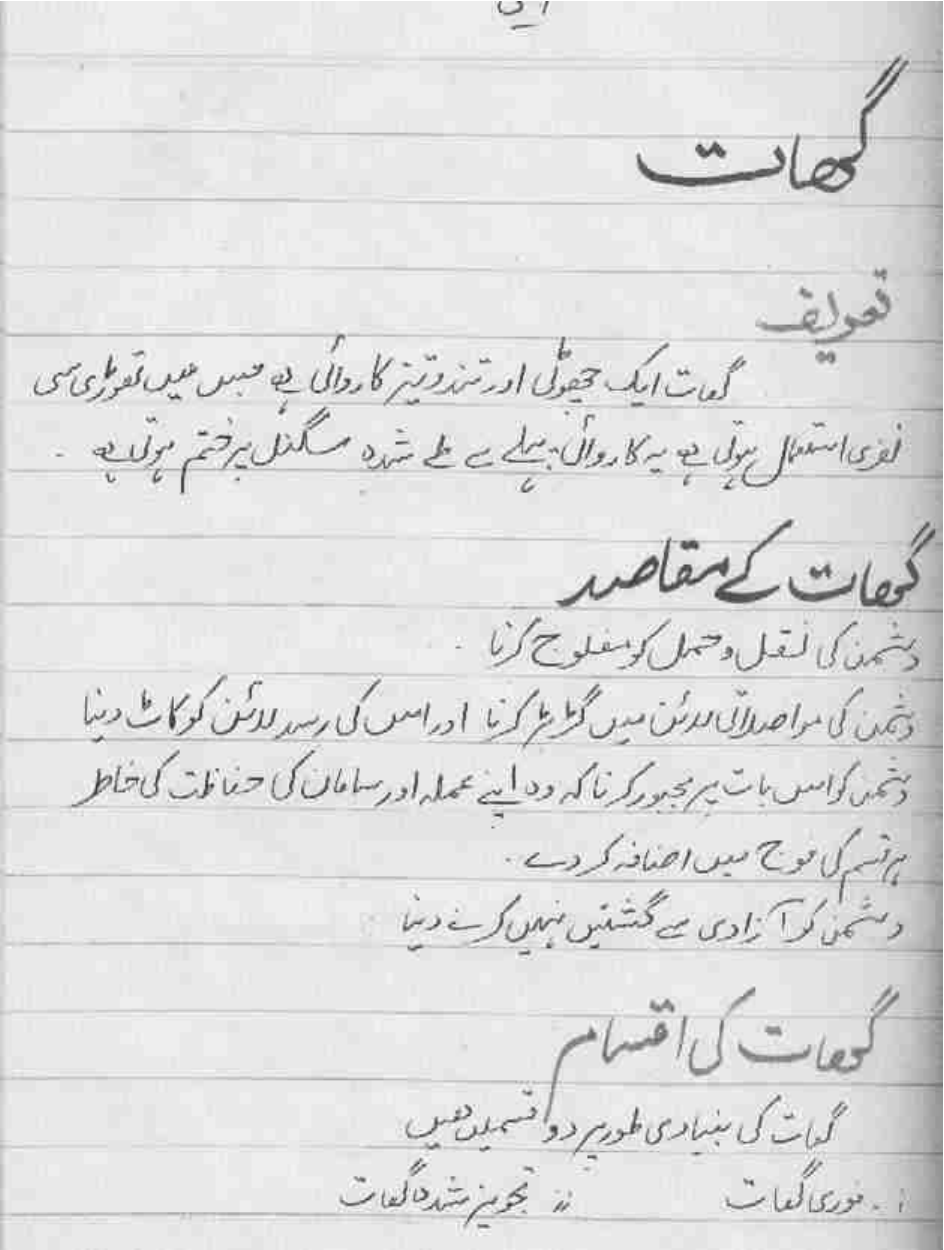 گھات
تعریف
گھات ایک چھوٹی اور تندوتیز کاروائی ہے جس میں تھوڑی سی
نفری استعمال ہوتی ہے یہ کاروائی پہلے سے طے شدہ سگنل پر ختم ہوتی ہے ۔
گھات کے مقاصد
دشمن کی نقل و حمل کو مفلوج کرنا ۔
دشمن کی مواصلاتی لائن میں گڑبڑ کرنا اور اس کی رسد لائن کو کاٹ دینا
دشمن کو اس بات پر مجبور کرنا کہ وہ اپنے عملہ اور سامان کی حفاظت کی خاطر
ہر قسم کی فوج میں اضافہ کر دے ۔
دشمن کو آزادی سے گشتیں نہیں کرنے دینا
گھات کی اقسام
گھات کی بنیادی طور پر دو قسمیں ھیں
i . فوری گھات ii تجویز شدہ گھات